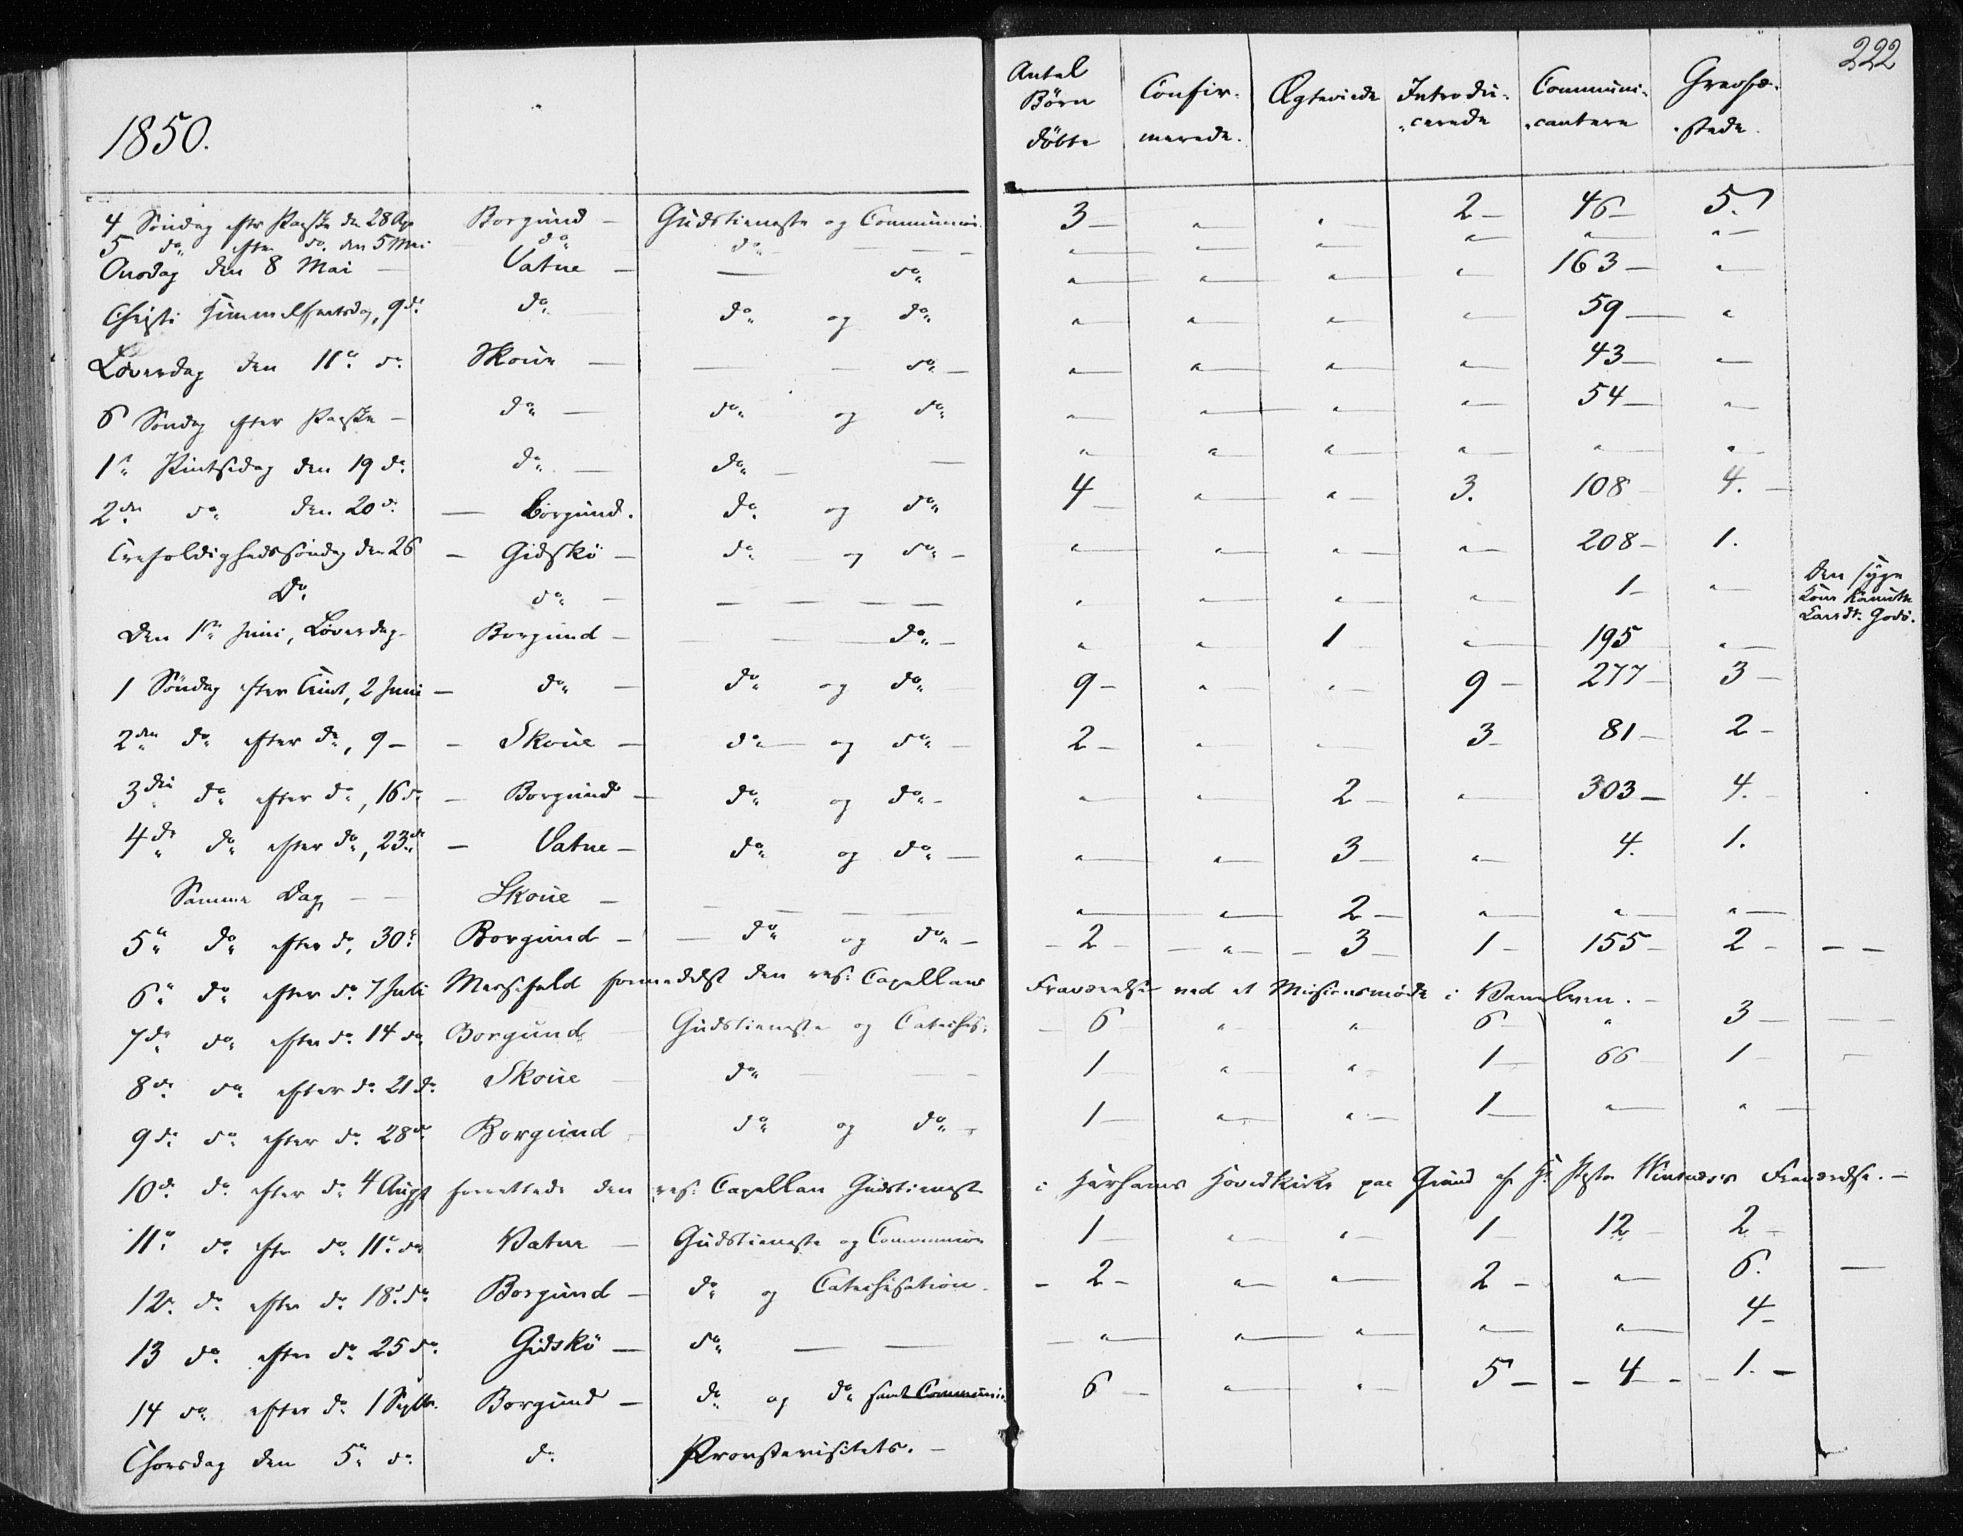 222
1850.
Antal Børn döbte | Confirmerede. | Ægteviede | Introducerede | Communicantere | Gravfæstede.
4 Söndag efter Paaske den 28 Apr | Borgund – | Gudstieneste og Communion | 3 – | " | " | 2 – | 46 – | 5.
5 do efter do. den 5 Mai | do | do – | " | " | " | " | " | "
Onsdag den 8 Mai – | Vatne – | – do | " | " | " | " | 163 – | "
Christi Himmelfartsdag, 9de | do | do og do | " | " | " | " | 59 – | "
Löverdag den 11te do | Skoue – | – – do – | " | " | " | " | 43 – | "
6 Söndag efter Paaske – | do – | do og do | " | " | " | " | 54 – | "
1ste Pintsedag den 19 do | do – | do – – | " | " | " | " | " | "
2den do den 20de | – Borgund. | do og do | 4 – | " | " | 3. | 108 – | 4. –
Trefoldighedssöndag den 26 | – Gidskö – | do – og do – | " | " | " | " | 208 – | 1.
Do. | do – | – – – – | " | " | " | " | 1 – | " | Den syge Kone
Den 1ste Juni, Löverdag – | Borgund – | – – do – | " | " | 1 | " | 195 | "
1 Söndag efter Trint, 2 Juni – | do – | do og do | 9 – | " | " | 9 – | 277 – | 3 –
2den do efter do, 9 – | – Skoue – | do – og do – | 2 – | " | " | 3 – | 81 – | 2 –
3die do efter do, 16 do | – Borgund – | do og do – | " | " | 2 – | " | 303 – | 4. –
4de do efter do, 23de | – Vatne – | do og do – | " | " | 3 – | " | 4. | 1.
Samme Dag – – | Skoue – | – – – – | " | " | 2 – | " | " | "
5te do efter do, 30te | Borgund – | – do og do – | – 2 – | – " – | – 3 – | 1 – | 155 – | 2 – | – –
6te do efter do 7 Juli Messefald formedelst den res: Capellans Fraværelse ved et Missionsmøde i Vanelven. –
7de do efter do 14 do | Borgund – | Gudstieneste og Catechis: | – 6 | " | " | 6 – | " | 3 – | – –
8de do efter do 21 do | Skoue – | do – – – | 1 – | " | " | 1 – | 66 – | 1 – | –
9de do efter do 28de | Borgund – | do og do – | 1 – | " | " | 1 – | " | "
10de do efter do 4 Augst forrettede den res: Capellan Gudstieneste i Harhams Hovedkirke paa Grund af Hr Pastor Fraværelse. –
11te do efter do 11te do | Vatne – | Gudstieneste og Communion | 1 – | " | " | 1 – | 12 – | 2 –
12te do efter do 18de do | Borgund – | do og Catechisation – | – 2 – | " | " | 2 – | " | 6. | –
13 do efter do 25 do | Gidskö – | do – – | – " – | " | " | " | " | 4 –
14 do efter do 1 Septbr. | Borgund – | do og do samt Communion | 6 – | " | " | 5 – | – 4 – | – 1. –
Thorsdag den 5te do | do | Provstevisitats. –